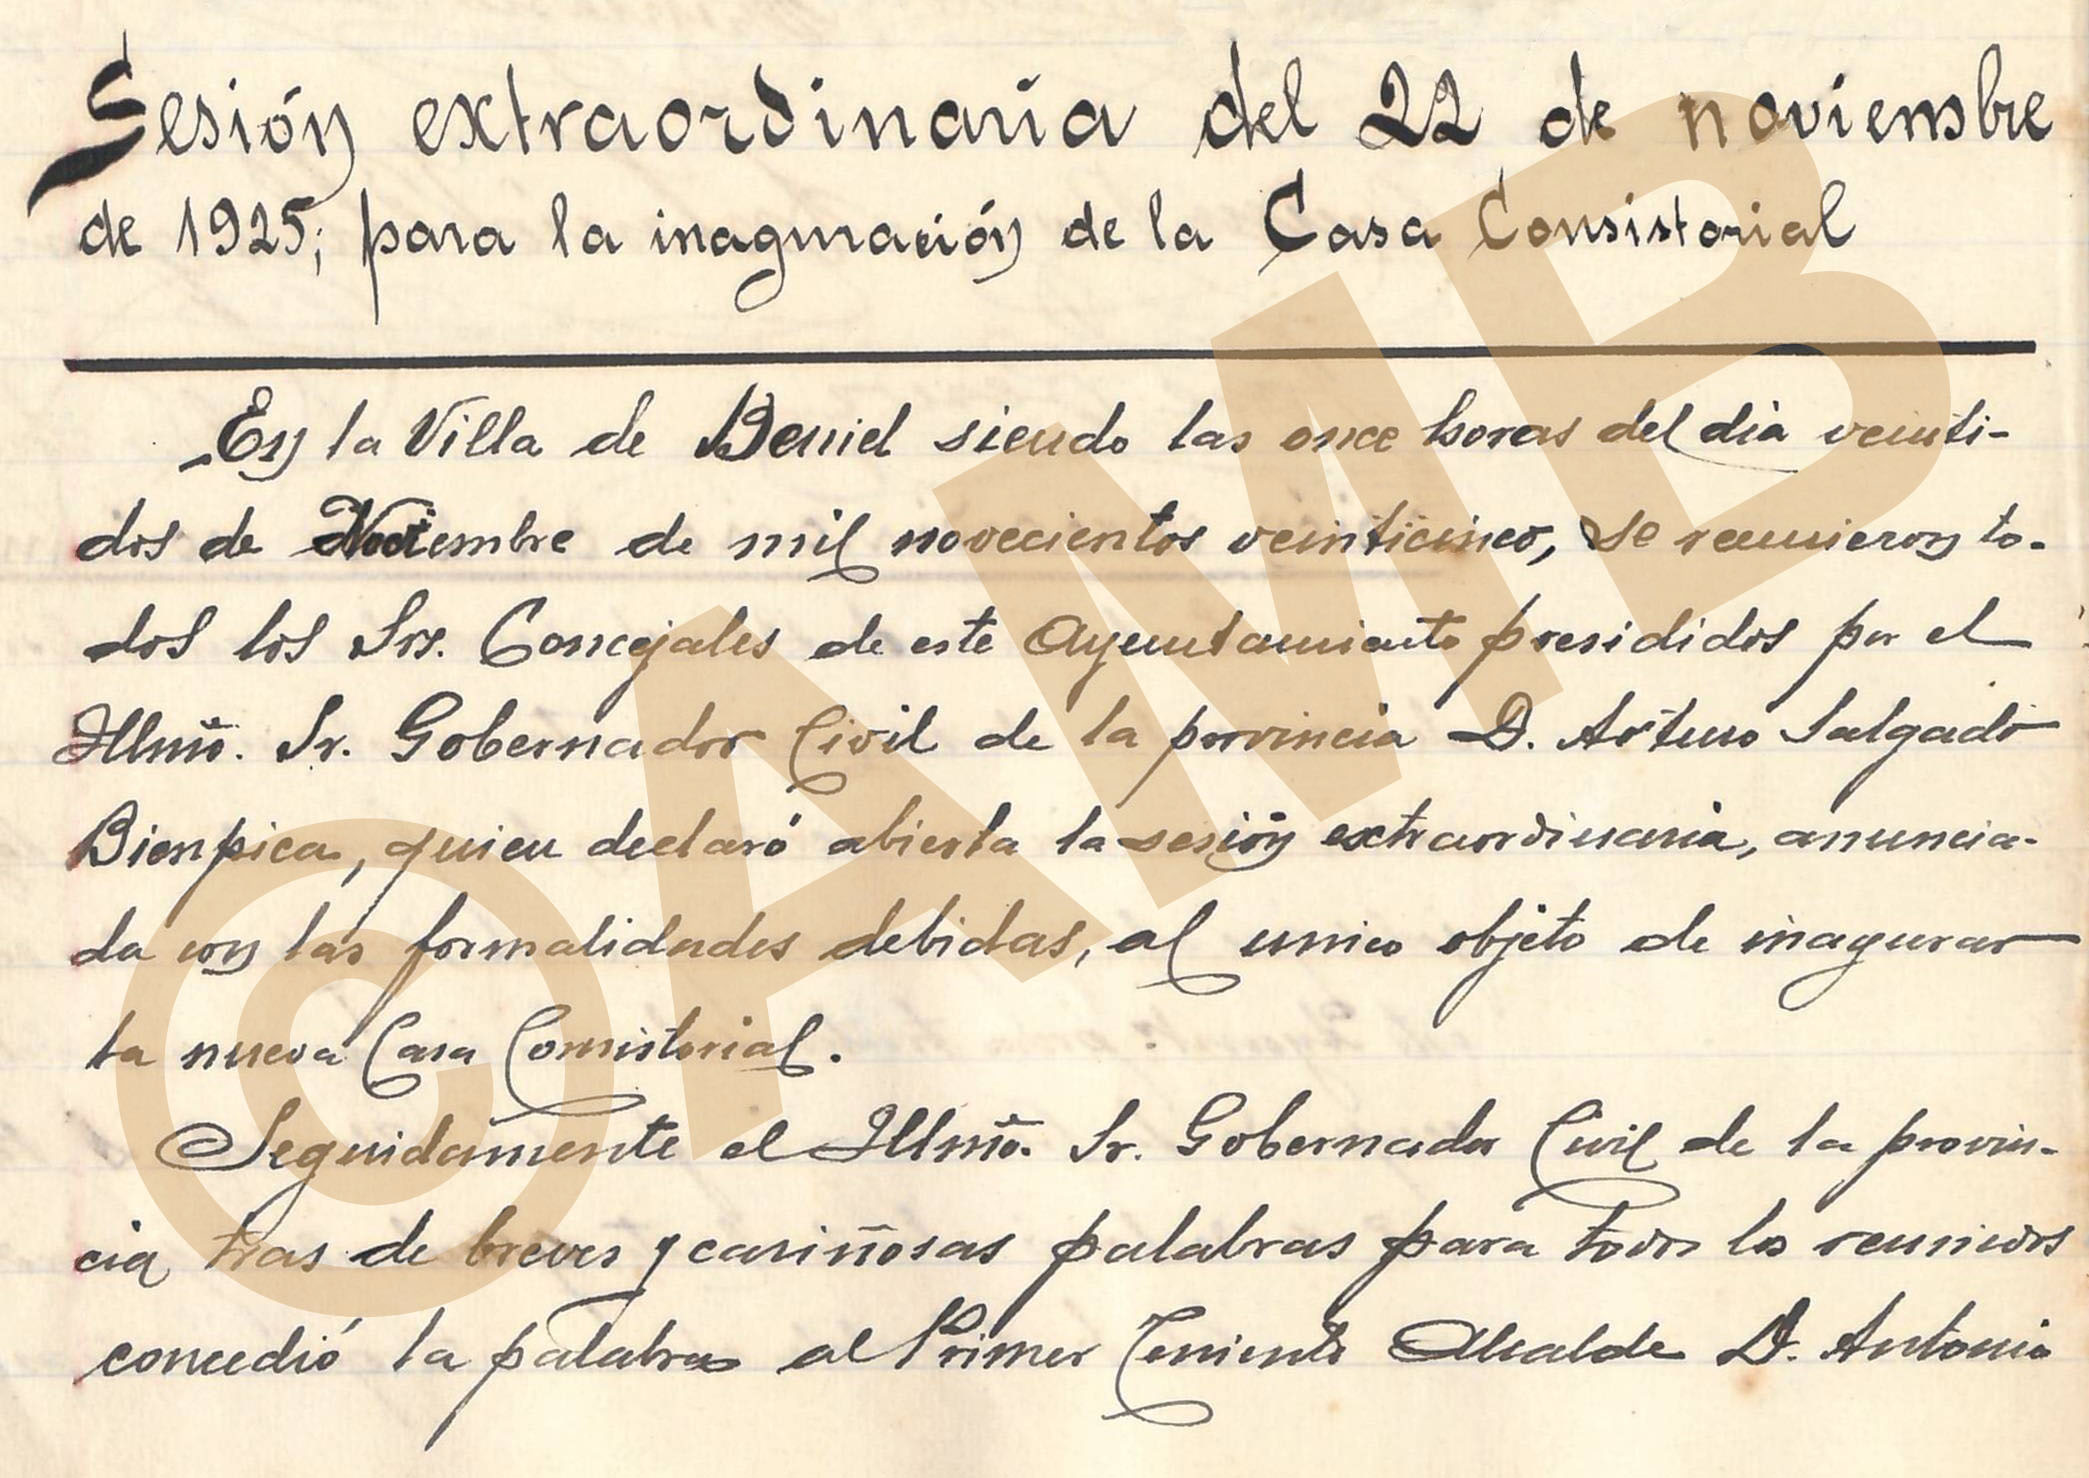 Sesión extraordinaria del 22 de noviembre
de 1925; para la inaguración de la Casa Consistorial
En la Villa de Beniel siendo las once horas del dia veinti-
dos de Noviembre de mil novecientos veinticinco, se reunieron to-
dos los Srs. Concejales de este Ayuntamiento presididos por el
Illmo. Sr. Gobernador Civil de la provincia D. Arturo Salgado
Bienpica, quien declaró abierta la sesión extraordinaria, anuncia-
da con las formalidades debidas, al unico objeto de inagurar
la nueva Casa Consistorial.
Seguidamente el Illmo. Sr. Gobernador Civil de la provin-
cia tras de breves y cariñosas palabras para todos los reunidos
concedió la palabra al Primer Teniente Alcalde D. Antonio
©AMB